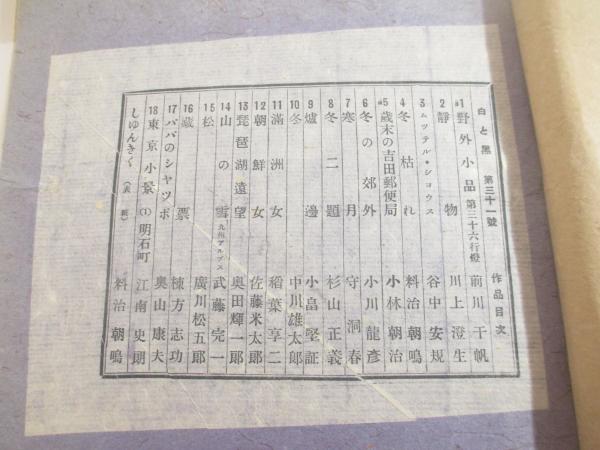 白と黑 第三十一號 作品目次
#1 野外小品 第三十六行燈 前川千帆
2 靜物 川上澄生
3 ムツテル・シヨウス 谷中安規
4 冬枯れ 料治朝鳴
#5 歳末の吉田郵便局 小林朝治
6 冬の郊外 小川龍彥
7 寒月 守洞春
8 冬二題 杉山正義
9 爐邊 小畠堅証
10 冬 中川雄太郎
11 滿洲女 稻葉享二
12 朝鮮女 佐藤米太郎
13 琵琶湖遠望 奥田輝一郎
14 山の雪 九州アルプス 武藤完一
15 松 廣川松五郎
16 藏票 棟方志功
17 パパのシヤツポ 奥山康夫
18 東京小景 (1) 明石町 江南史朗
しゆんぎく (表紙) 料治朝鳴